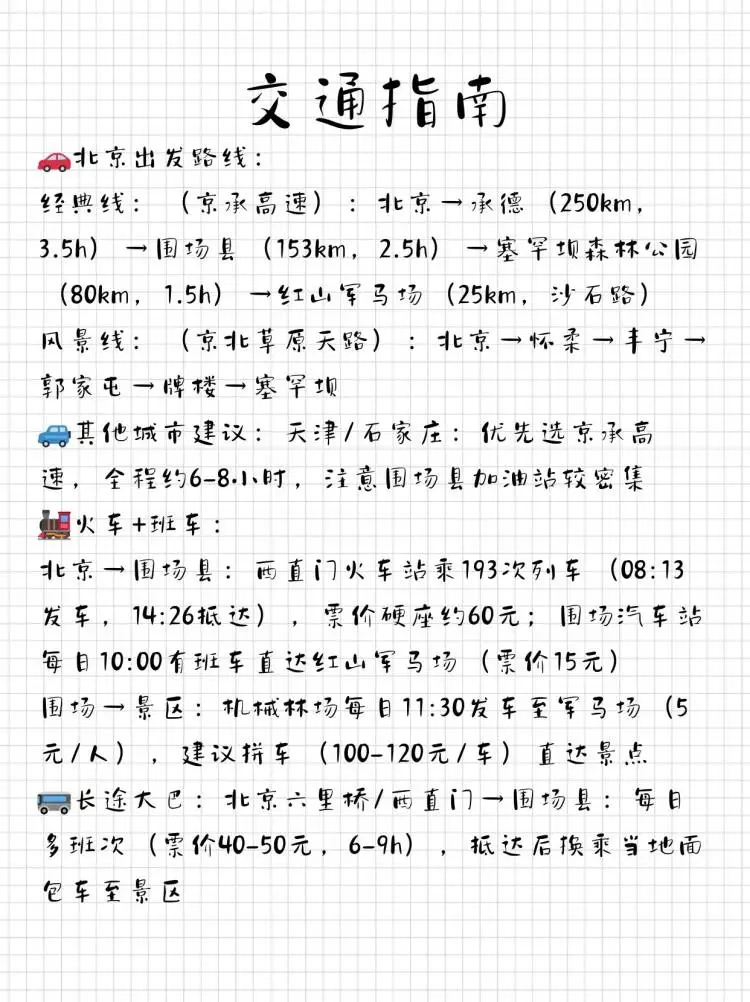 交通指南
🚗北京出发路线：
经典线：（京承高速）：北京→承德（250km，
3.5h）→围场县（153km，2.5h）→塞罕坝森林公园
（80km，1.5h）→红山军马场（25km，沙石路）
风景线：（京北草原天路）：北京→怀柔→丰宁→
郭家屯→牌楼→塞罕坝
🚙其他城市建议：天津/石家庄：优先选京承高
速，全程约6-8小时，注意围场县加油站较密集
🚂火车+班车：
北京→围场县：西直门火车站乘193次列车（08:13
发车，14:26抵达），票价硬座约60元；围场汽车站
每日10:00有班车直达红山军马场（票价15元）
围场→景区：机械林场每日11:30发车至军马场（5
元/人），建议拼车（100-120元/车）直达景点
🚌长途大巴：北京六里桥/西直门→围场县：每日
多班次（票价40-50元，6-9h），抵达后换乘当地面
包车至景区